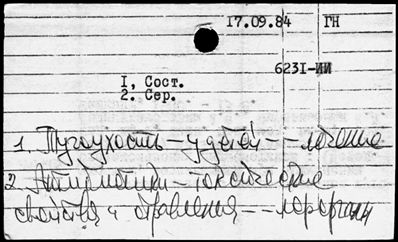 17.09.84 ГН
6231-ИИ
1, Сост.
2. Сер.
1. Тугоухость – у детей -- лечение
2. Антибиотики – токсические
свойства и отравления --